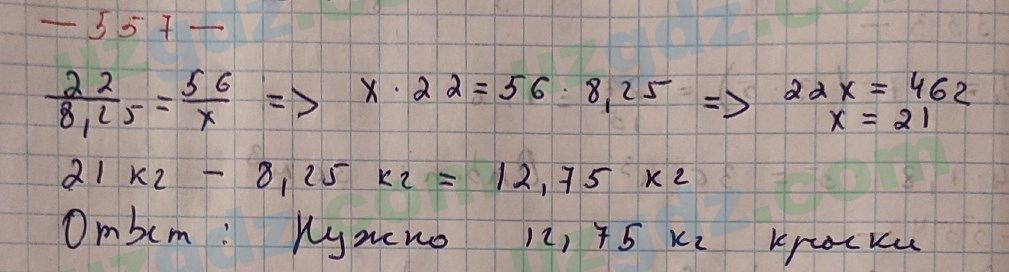 - 557 -
22/8,25 = 56/x => x · 22 = 56 · 8,25 => 22x = 462
x = 21
21 кг - 8,25 кг = 12,75 кг
Ответ: Нужно 12,75 кг краски
uzgdz.com